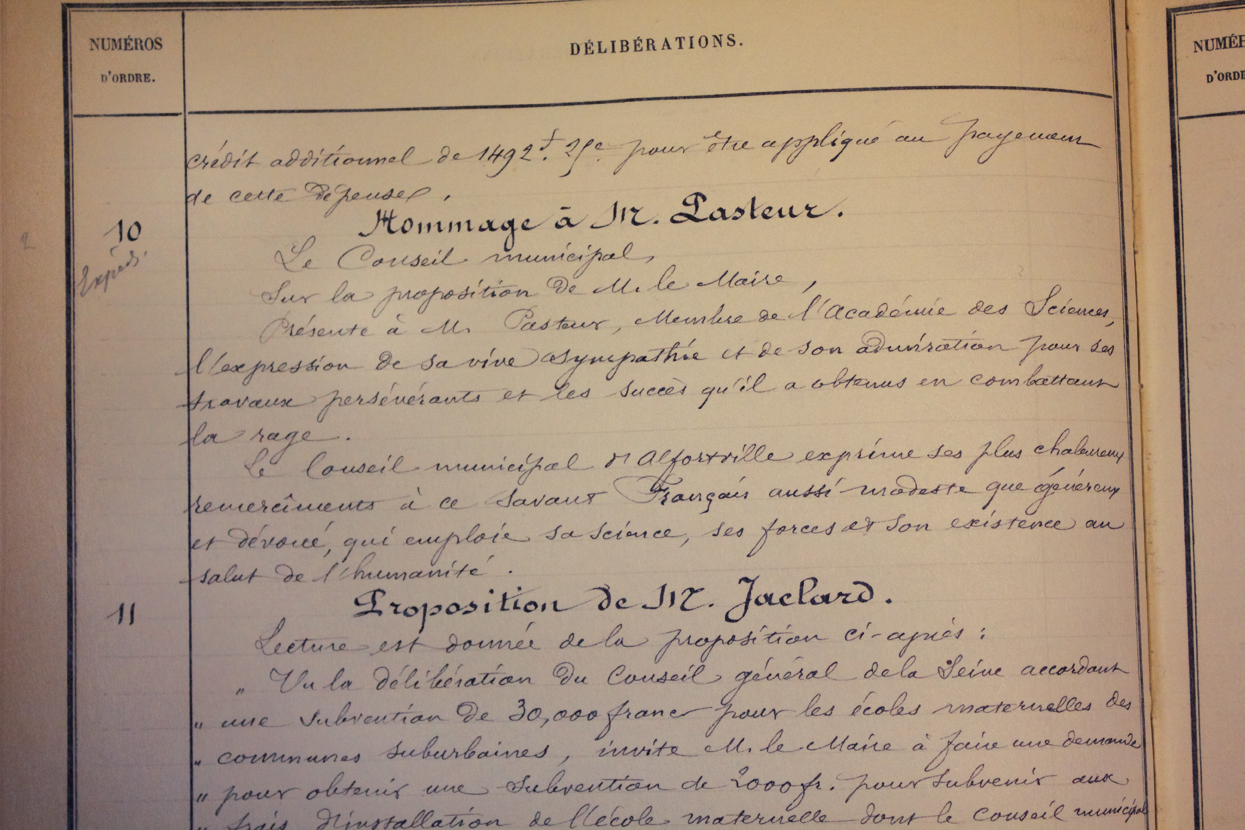 NUMÉROS
D'ORDRE.
DÉLIBÉRATIONS.
crédit additionnel de 1492f. 25c. pour être appliqué au payement
de cette dépense.
10
Expéd.
Hommage à M. Pasteur.
Le Conseil municipal,
Sur la proposition de M. le Maire,
Présente à M. Pasteur, Membre de l'Académie des Sciences,
l'expression de sa vive sympathie et de son admiration pour ses
travaux persévérants et les succès qu'il a obtenus en combattant
la rage.
Le Conseil municipal d'Alfortville exprime ses plus chaleureux
remercîments à ce savant Français aussi modeste que généreux
et dévoué, qui emploie sa science, ses forces et son existence au
salut de l'humanité.
11
Proposition de M. Jaclard.
Lecture est donnée de la proposition ci-après :
" Vu la délibération du Conseil général de la Seine accordant
" une subvention de 30,000 francs pour les écoles maternelles des
" communes suburbaines, invite M. le Maire à faire une demande
" pour obtenir une subvention de 2000 fr. pour subvenir aux
" frais d'installation de l'école maternelle dont le Conseil municipal